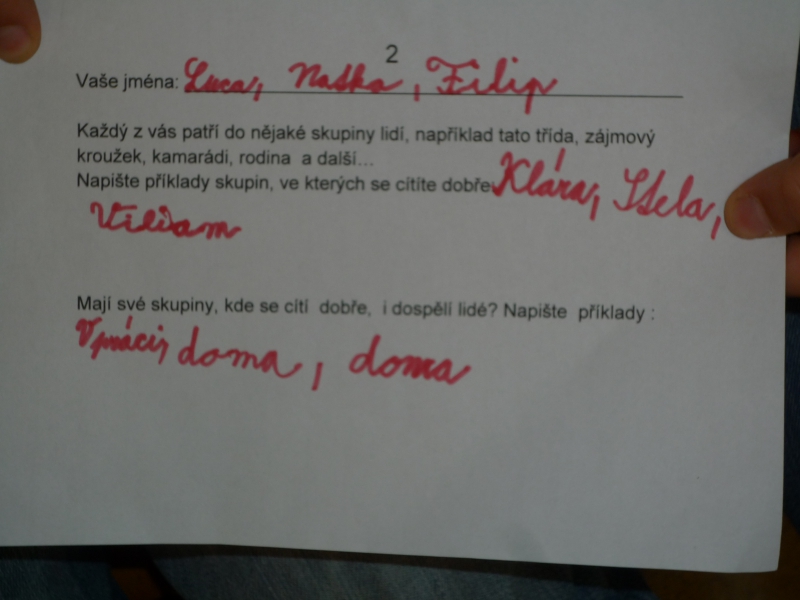 2
Vaše jména: Luca, Naťka, Filip
Každý z vás patří do nějaké skupiny lidí, například tato třída, zájmový
kroužek, kamarádi, rodina a další...
Napište příklady skupin, ve kterých se cítíte dobře Klára,
Viliam
Mají své skupiny, kde se cítí dobře, i dospělí lidé? Napište příklady :
V práci, doma, doma